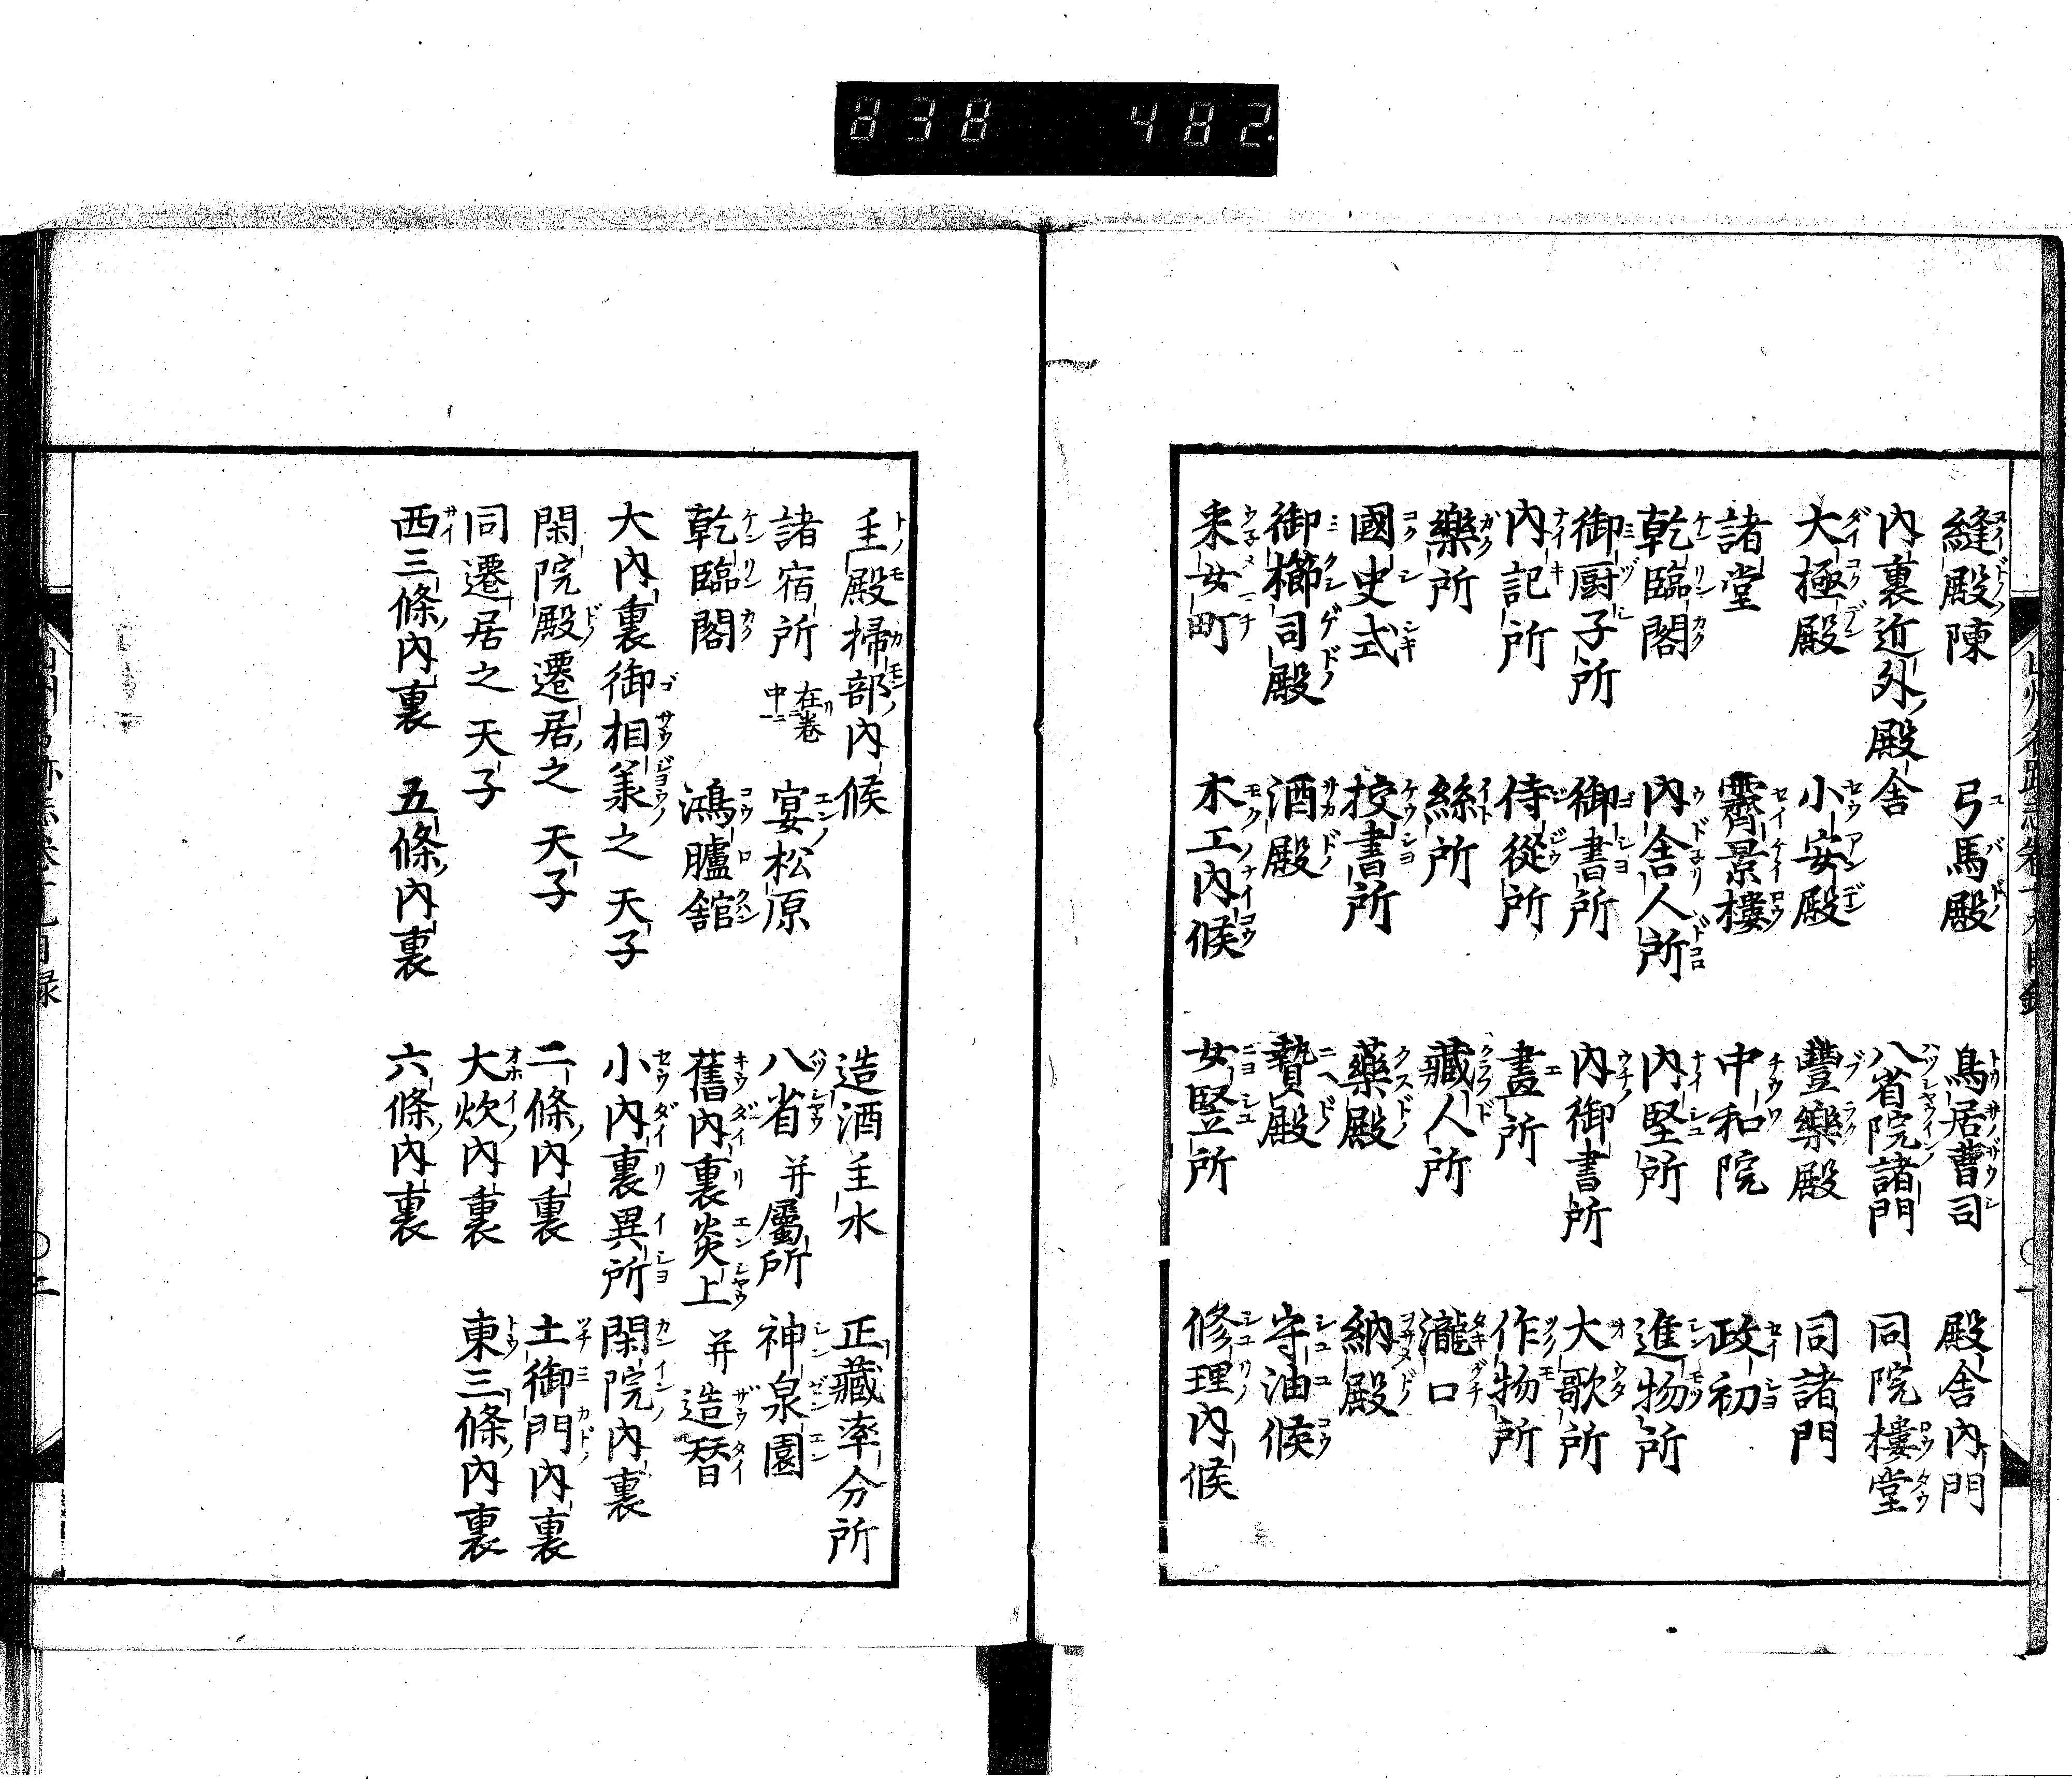 838 482
縫殿陳 弓馬殿 鳥居曹司 殿舎内門
内裏近外殿舎 八省院諸門 同院樓堂
大極殿 小安殿 豐樂殿 同諸門
諸堂 霽景樓 中和院 政初
乾臨閣 内舎人所 内堅所 進物所
御厨子所 御書所 内御書所 大歌所
内記所 侍從所 畫所 作物所
樂所 絲所 藏人所 瀧口
國史式 挍書所 藥殿 納殿
御櫛司殿 酒殿 贄殿 守油候
釆女町 木工内候 女竪所 修理内候
主殿掃部内候 造酒主水 正藏率分所
諸宿所 在卷中 宴松原 八省 并屬所 神泉園
乾臨閣 鴻臚舘 舊内裏炎上 并造替
大内裏御相義之天子 小内裏異所 閑院内裏
閑院殿遷居之天子 二條内裏 土御門内裏
同遷居之天子 大炊内裏 東三條内裏
西三條内裏 五條内裏 六條内裏